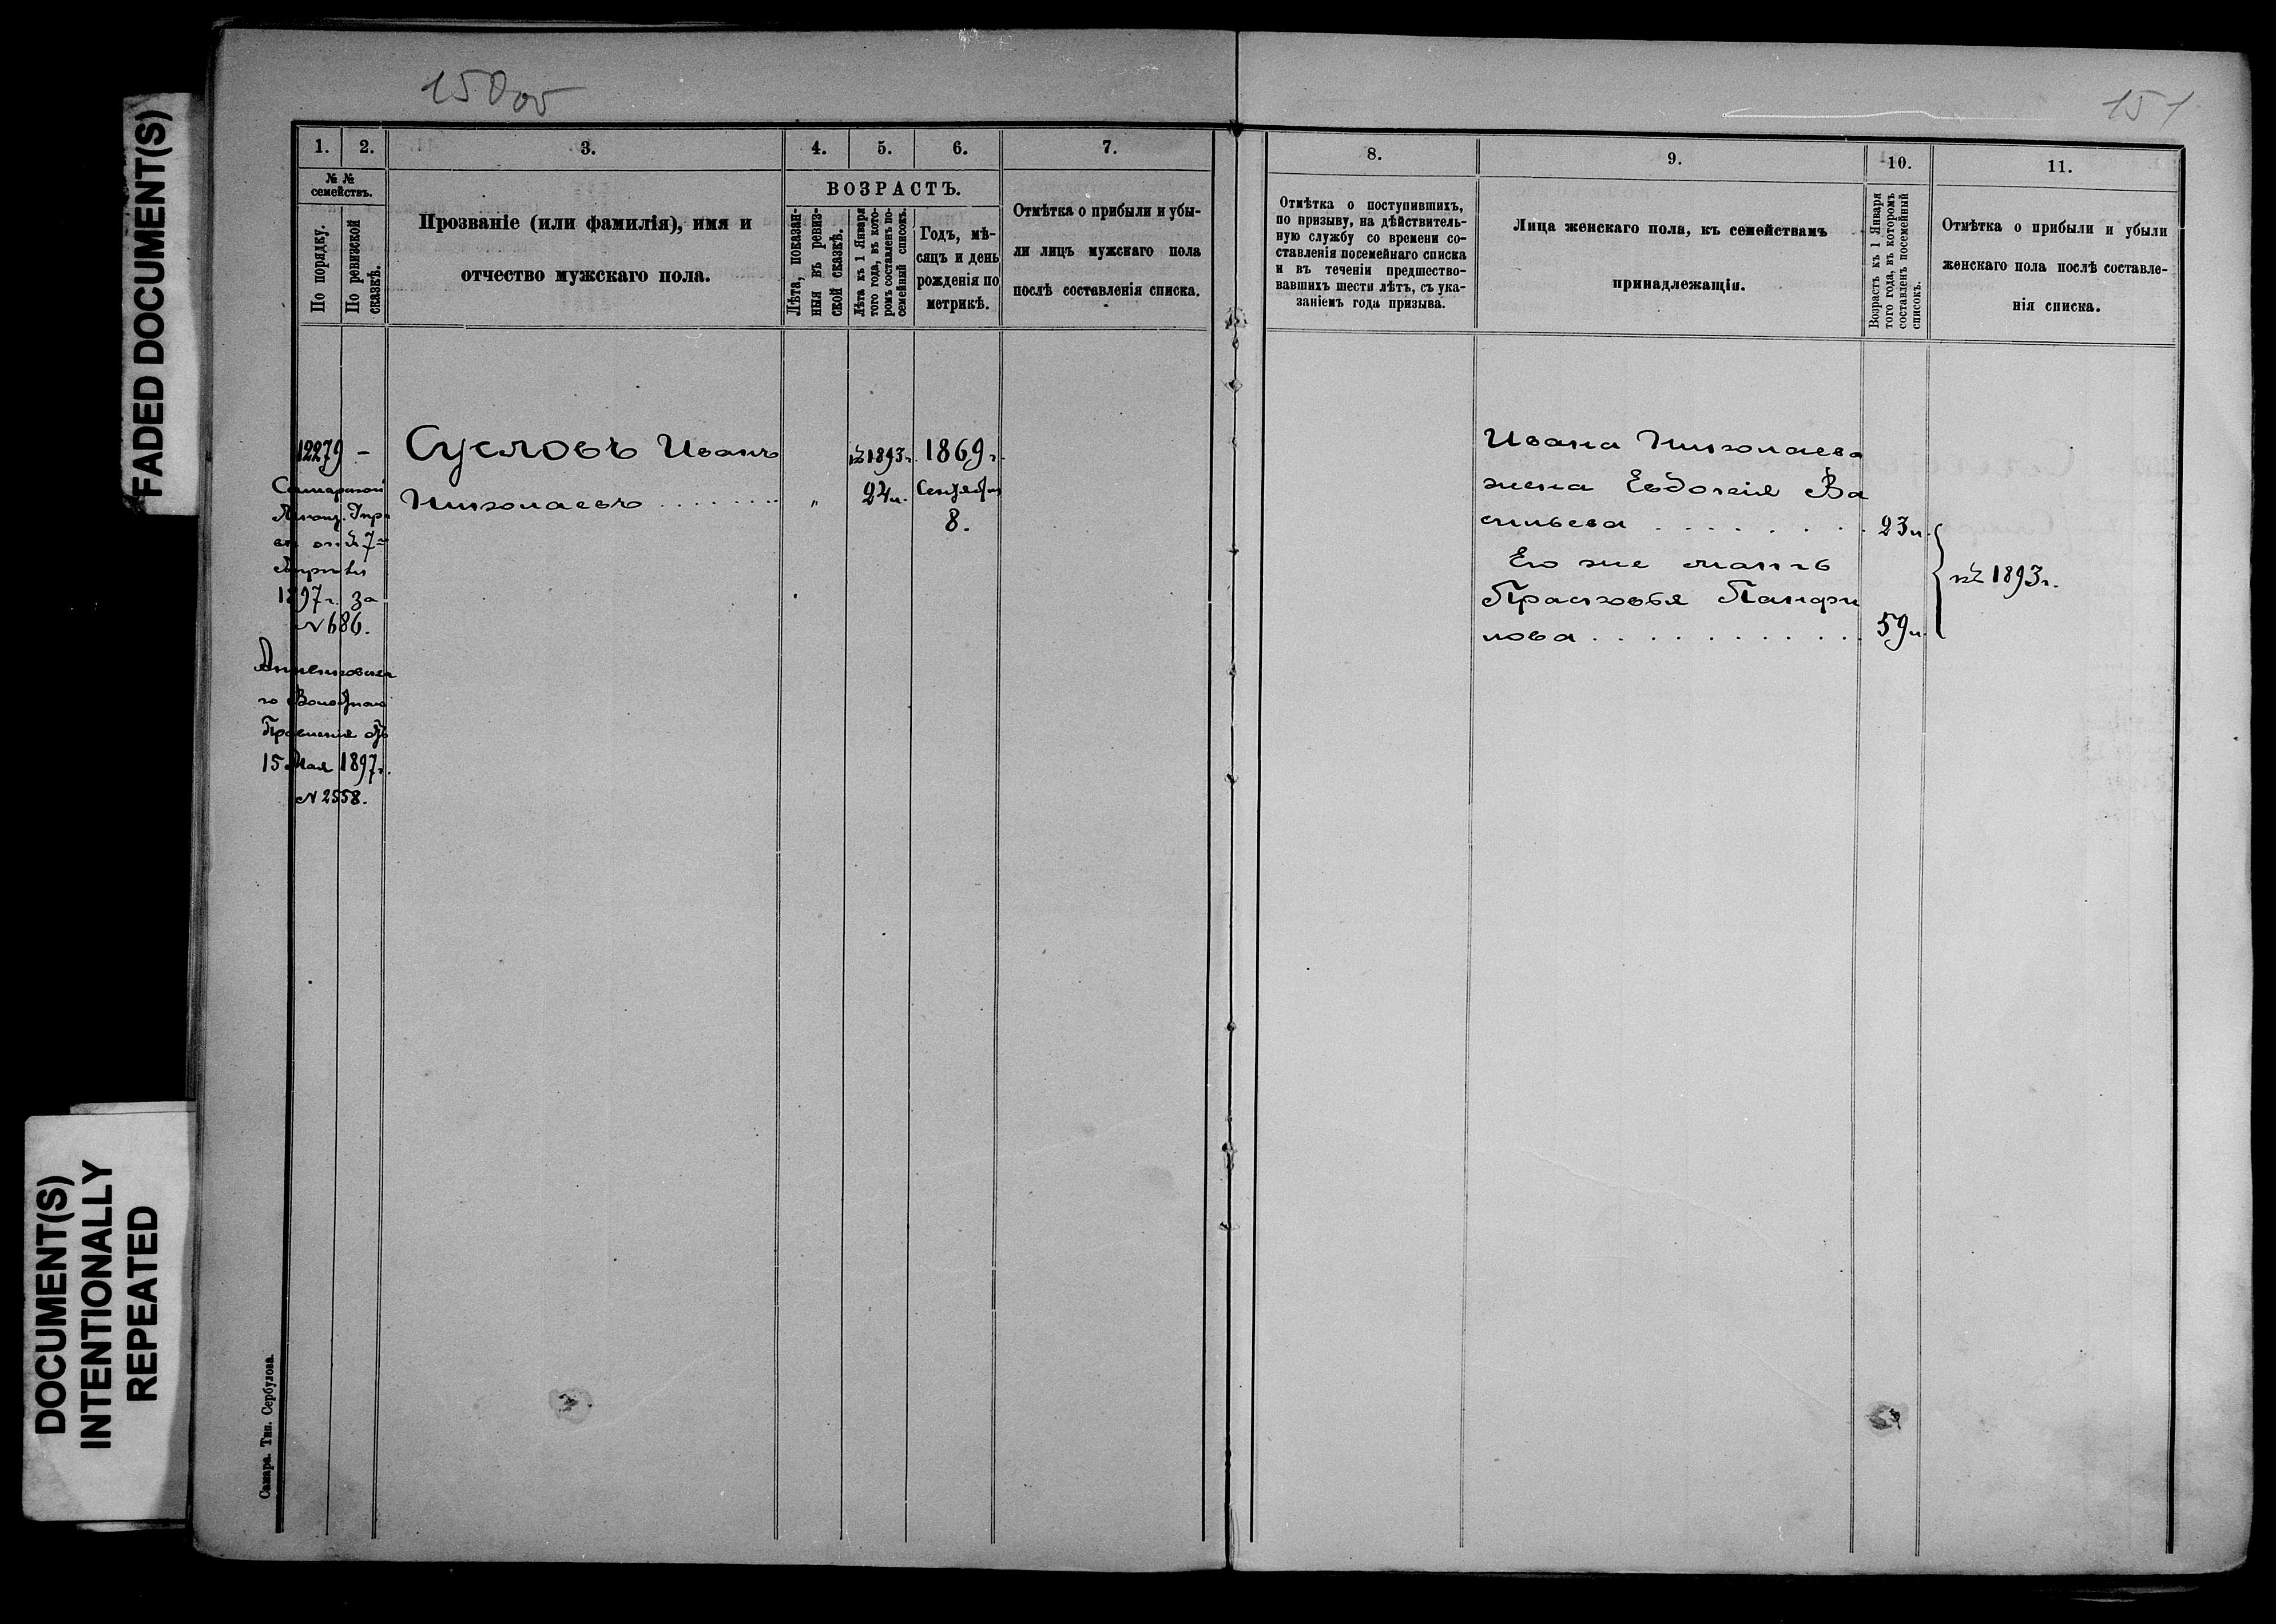 FADED DOCUMENT(S)
DOCUMENT(S)
INTENTIONALLY
REPEATED
150 об
151
1.
2.
3.
4.
5.
6.
7.
№ №
семействъ.
По порядку.
По ревизской
сказкѣ.
Прозваніе (или фамилія), имя и
отчество мужскаго пола.
ВОЗРАСТЪ.
Лѣта, показан-
ныя въ ревиз-
ской сказкѣ.
Лѣта къ 1 Января
того года, въ кото-
ромъ составленъ по-
семейный списокъ.
Годъ, мѣ-
сяцъ и день
рожденія по
метрикѣ.
Отмѣтка о прибыли и убы-
ли лицъ мужскаго пола
послѣ составленія списка.
12279 -
Суслов Иванъ
Николаевъ
"
къ 1893 г.
24 л.
1869 г.
Сентября
8.
Самарской
Казен.
от
7
1897 г. за
№ 686.
Волостнаго
Правленія отъ
15 Мая 1897 г.
№ 2558.
Самара. Тип. Сербулова.
8.
9.
10.
11.
Отмѣтка о поступившихъ,
по призыву, на дѣйствитель-
ную службу со времени со-
ставленія посемейнаго списка
и въ теченіи предшество-
вавшихъ шести лѣтъ, съ ука-
заніемъ года призыва.
Лица женскаго пола, къ семействамъ
принадлежащія.
Возрастъ къ 1 Января
того года, въ которомъ
составленъ посемейный
списокъ.
Отмѣтка о прибыли и убыли
женскаго пола послѣ составле-
нія списка.
Ивана Николаева
жена Евдокія Ва
сильева 23 л.
Его же мать
Прасковья Панфи
лова 59 л.
къ 1893 г.